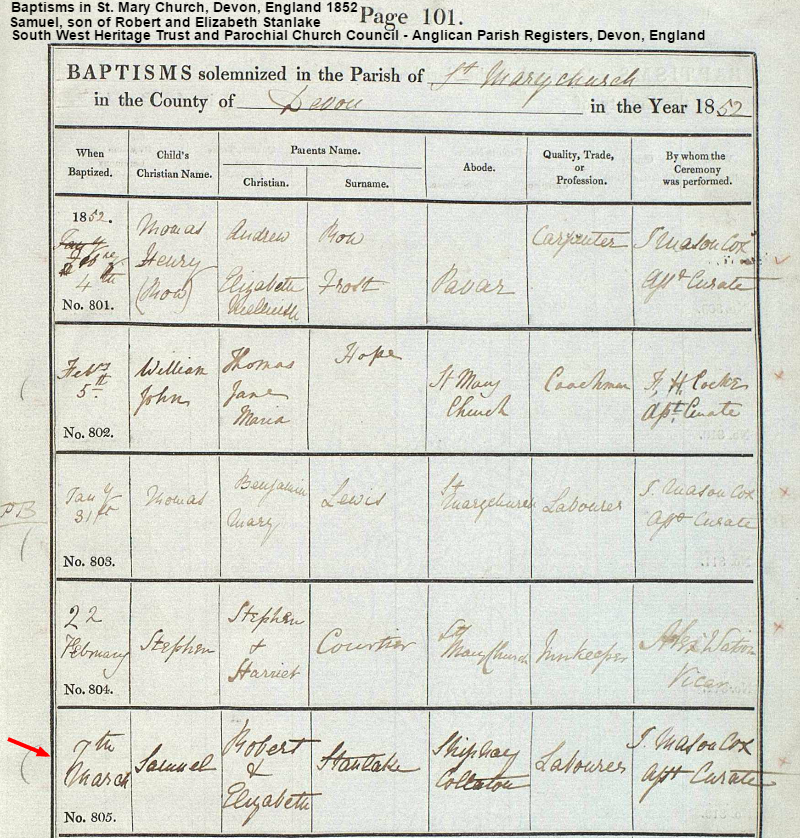 Baptisms in St. Mary Church, Devon, England 1852
Samuel, son of Robert and Elizabeth Stanlake
South West Heritage Trust and Parochial Church Council - Anglican Parish Registers, Devon, England
Page 101.
BAPTISMS solemnized in the Parish of St Marychurch
in the County of Devon in the Year 1852
When Baptized.
Child's Christian Name.
Parents Name.
Christian.
Surname.
Abode.
Quality, Trade, or Profession.
By whom the Ceremony was performed.
1852.
4th
No. 801.
Thomas
Henry
(Row)
Andrew
Elizabeth
Row
Frost
Carpenter
J Mason Cox
Apt Curate
5th
No. 802.
William
John
Thomas
Jane
Maria
Hope
St Mary
Church
Coachman
Apt. Curate
31st
No. 803.
Thomas
Benjamin
Mary
Lewis
St
Marychurch
Labourer
J. Mason Cox
Apt Curate
PB
22
February
No. 804.
Stephen
Stephen
&
Harriet
Courtier
St
MaryChurch
Innkeeper
Alex Watson
Vicar
7th
March
No. 805.
Samuel
Robert
&
Elizabeth
Stanlake
Shiphay
Collaton
Labourer
J. Mason Cox
Apt Curate